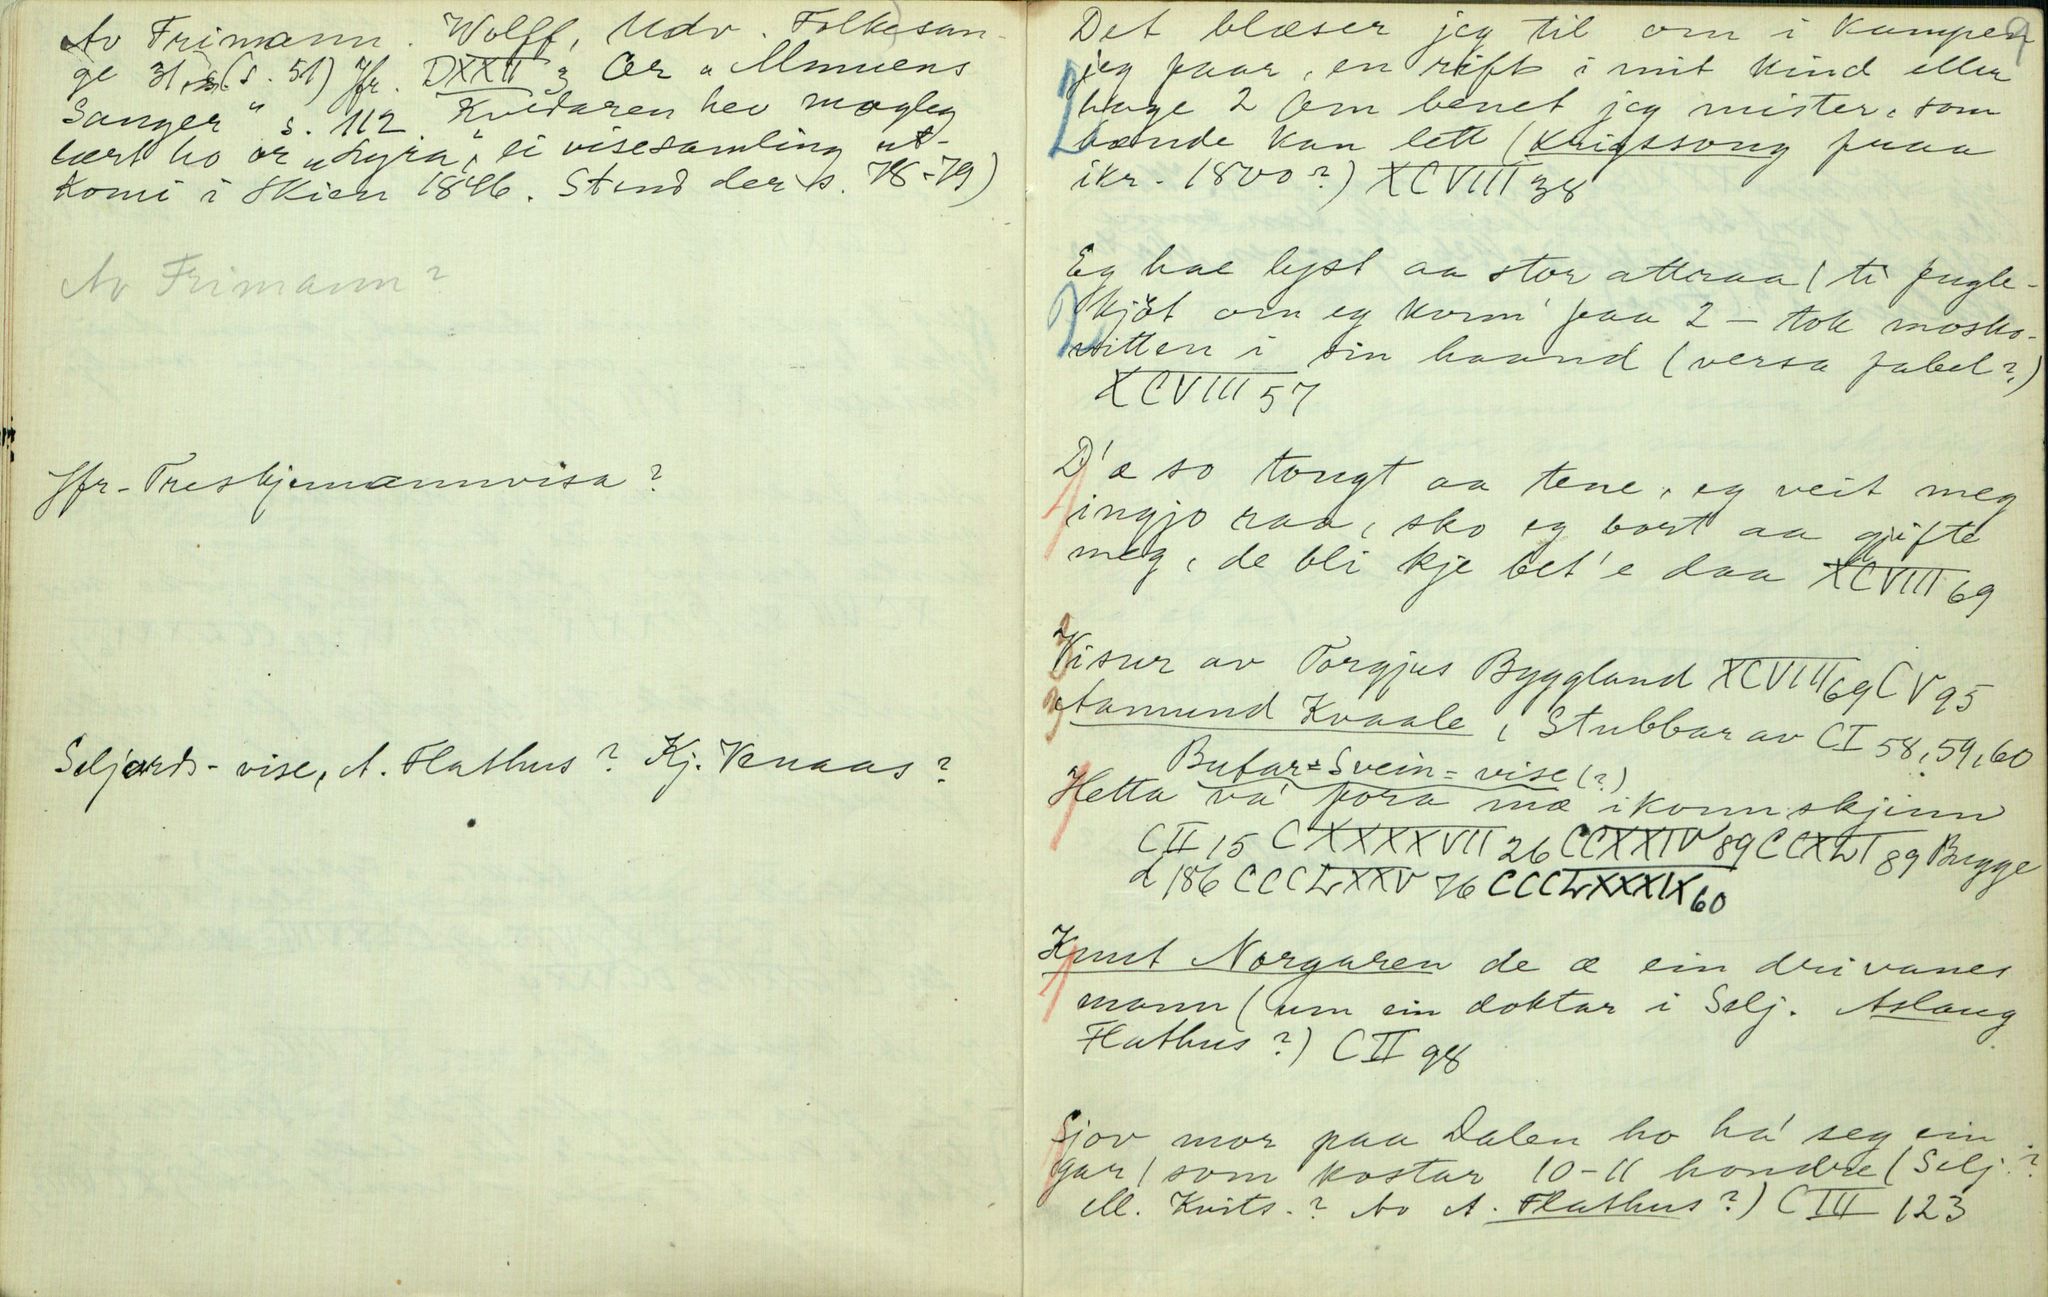 Av Frimann. Wolff, Udv. Folkesan-
ge 31, (s. 51) Jfr. DXXII 3 Or "Almuens
Sanger" s. 112. Kvedaren hev mogleg
lært ho or "Lyra", ei visesamling ut-
komi i Skien 1846. Stend der s. 78-79)
Av Frimann?
Jfr. Treskjemannvisa?
Seljords-vise, A. Flathus? Kj. Vanaas?
9
Det blæser jeg til om i kampen
jeg faar, en rift i mit kind eller
hage 2 Om benet jeg mister, som
hænde kan lett (Krigssong fraa
ikr. 1800?) XCVIII 38
2
Eg hae lyst aa stor attraa / ti fugle-
kjöt om eg kom' paa 2 - tok mosko-
witten i sin haand (versa fabel?)
XCVIII 57
2
D'æ so tongt aa tene, eg veit meg
ingjo raa, sko eg bort aa gjifte
meg, de bli kje bet'e daa XCVIII 69
1
Visur av Torgjus Byggland XCVIII 69 CV 95
3
Aamund Kvaale, Stubbar av CI 58, 59, 60
3
Bufar-Svein-vise (?)
Hetta va' fora mæ ikonnskjinn
CII 15 CXXXXVII 26 CCXXIV 89 CCXLI 89 Bugge
d 186 CCCLXXV 76 CCCLXXXIX 60
1
Knut Norgaren de æ ein drivanes
mann (um ein doktar i Selj. Aslaug
Flathus?) CII 98
1
Sjov mor paa Dalen ho ha' seg ein
gar / som kostar 10-11 hondre (Selj.?
M. Kvits.? Av A. Flathus?) CIII 123
1